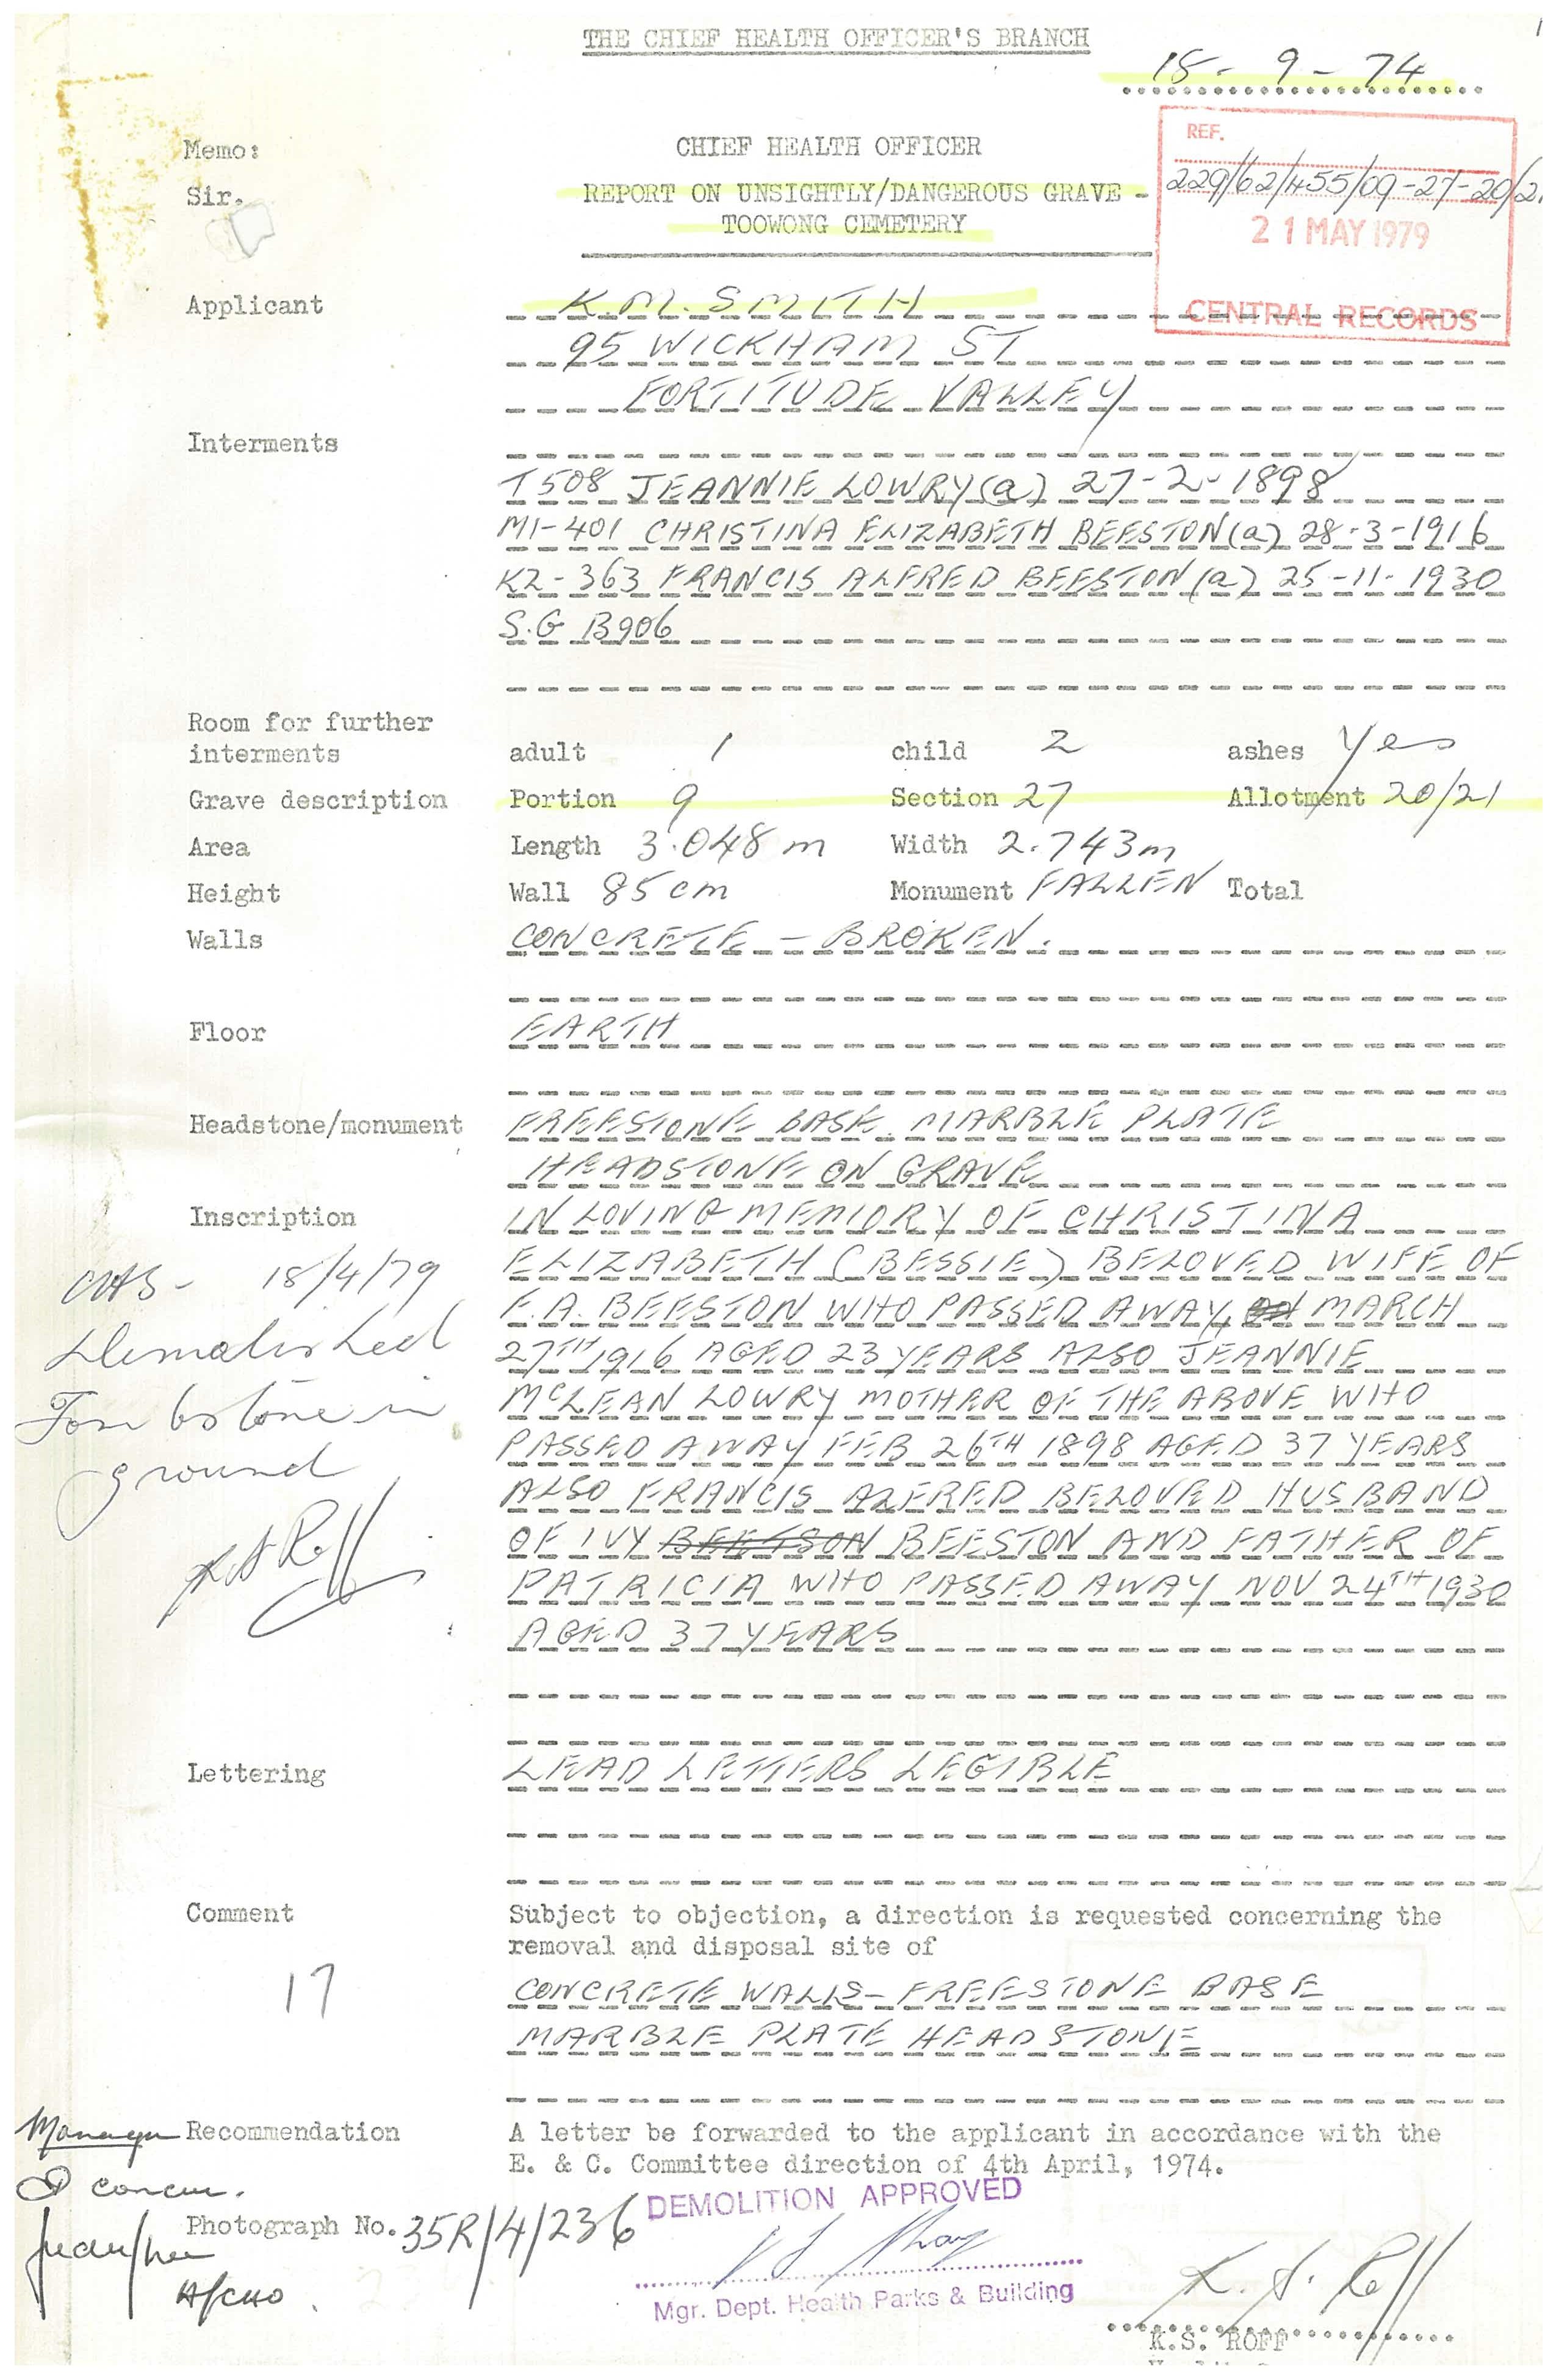 THE CHIEF HEALTH OFFICER'S BRANCH
18 - 9 - 74
Memo: CHIEF HEALTH OFFICER
Sir. REPORT ON UNSIGHTLY/DANGEROUS GRAVE -
TOOWONG CEMETERY
REF.
229/62/455/09-27-20/2
21 MAY 1979
CENTRAL RECORDS
Applicant K.M. SMITH
95 WICKHAM ST
FORTITUDE VALLEY
Interments
T508 JEANNIE LOWRY (a) 27-2-1898
M1-401 CHRISTINA ELIZABETH BEESTON (a) 28-3-1916
K2-363 FRANCIS ALFRED BEESTON (a) 25-11-1930
S.G B906
Room for further
interments adult 1 child 2 ashes Yes
Grave description Portion 9 Section 27 Allotment 20/21
Area Length 3.048 m Width 2.743m
Height Wall 85cm Monument FALLEN Total
Walls CONCRETE - BROKEN.
Floor EARTH
Headstone/monument FREESTONE BASE MARBLE PLATE
HEADSTONE ON GRAVE
Inscription IN LOVING MEMORY OF CHRISTINA
ELIZABETH (BESSIE) BELOVED WIFE OF
F.A. BEESTON WHO PASSED AWAY MARCH
27TH 1916 AGED 23 YEARS ALSO JEANNIE
McLEAN LOWRY MOTHER OF THE ABOVE WHO
PASSED AWAY FEB 26TH 1898 AGED 37 YEARS
ALSO FRANCIS ALFRED BELOVED HUSBAND
OF IVY BEETSON BEESTON AND FATHER OF
PATRICIA WHO PASSED AWAY NOV 24TH 1930
AGED 37 YEARS
18/4/79
Demolished
Tombstone in
ground
Lettering LEAD LETTERS LEGIBLE
Comment Subject to objection, a direction is requested concerning the
removal and disposal site of
17
CONCRETE WALLS - FREESTONE BASE
MARBLE PLATE HEADSTONE
Manager
Recommendation A letter be forwarded to the applicant in accordance with the
E. & C. Committee direction of 4th April, 1974.
I concur.
DEMOLITION APPROVED
Photograph No. 35R/4/236
A/CHO.
Mgr. Dept. Health Parks & Building
K. S. Roff
K.S. ROFF